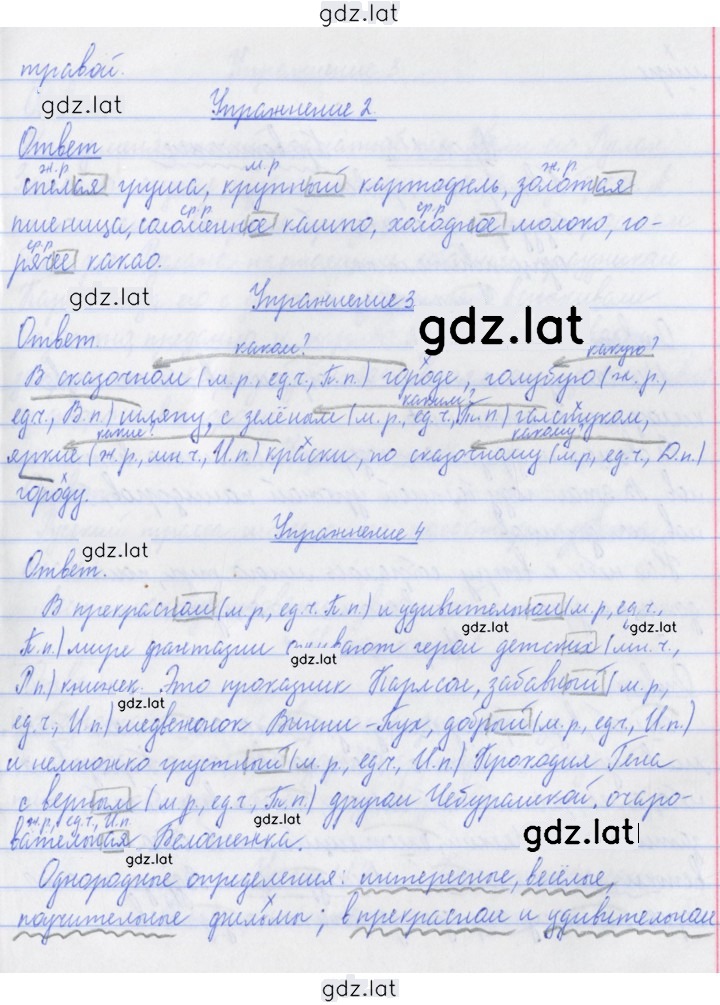 gdz.lat
травой.
gdz.lat
Упражнение 2
Ответ
ж.р м.р ж.р
спелая груша, крупный картофель, золотая
ср.р ср.р
пшеница, соломенное кашпо, холодное молоко, го-
ср.р
рячее какао.
gdz.lat
Упражнение 3
Ответ.
gdz.lat
каком? какую?
В сказочном (м.р., ед.ч., П.п.) городе, голубую (ж.р.,
каким?
ед.ч., В.п.) шляпу, с зелёным (м.р., ед.ч., Т.п.) галстуком,
какие? какому?
яркие (ж.р., мн.ч., И.п.) краски, по сказочному (м.р., ед.ч., Д.п.)
городу.
Упражнение 4
gdz.lat
Ответ.
В прекрасном (м.р., ед.ч. П.п.) и удивительном (м.р., ед.ч.,
gdz.lat gdz.lat
П.п.) мире фантазии герои детских (мн.ч.,
gdz.lat
Р.п) книжек. Это проказник Карлсон, забавный (м.р.,
gdz.lat
ед.ч., И.п.) медвежонок Винни-Пух, добрый (м.р., ед.ч., И.п.)
и немножко грустный (м.р., ед.ч., И.п.) Крокодил Гена
с верным (м.р., ед.ч., Т.п.) другом Чебурашкой, очаро-
ж.р., ед.ч., И.п.
gdz.lat
вательная Белоснежка.
gdz.lat
gdz.lat
Однородные определения: интересные, весёлые,
поучительные фильмы; в прекрасном и удивительном
gdz.lat